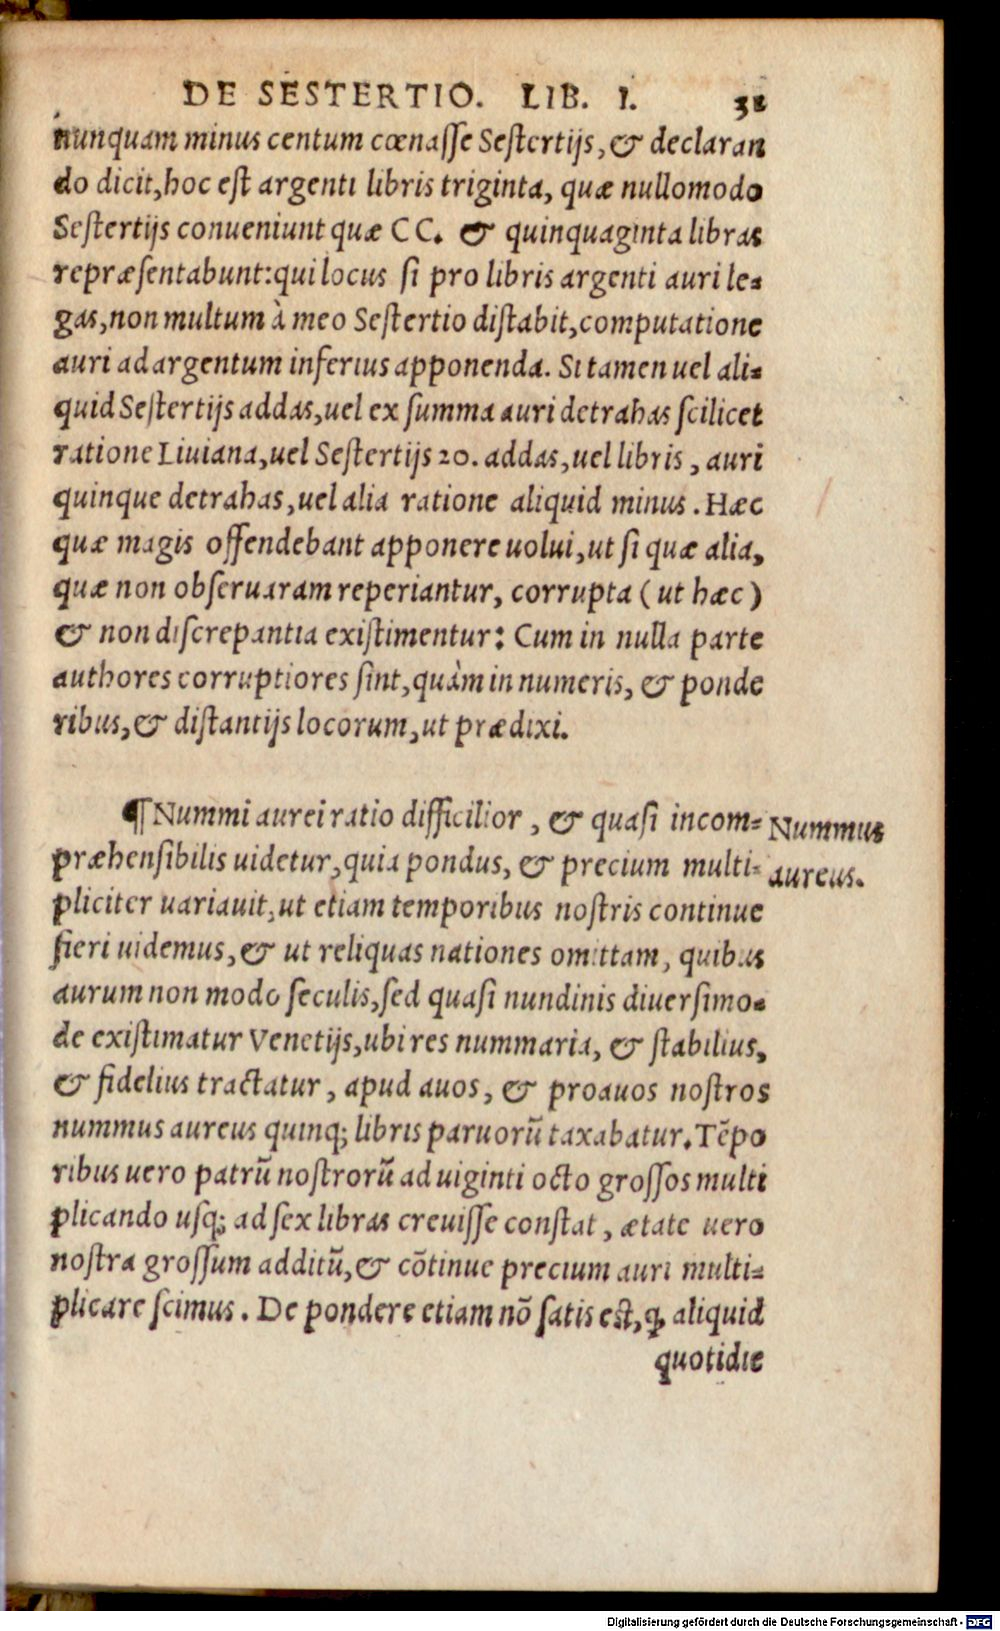 DE SESTERTIO. LIB. I. 31
nunquam minus centum cœnasse Sestertijs, & declaran
do dicit, hoc est argenti libris triginta, quæ nullomodo
Sestertijs conueniunt quæ CC. & quinquaginta libras
repræsentabunt: qui locus si pro libris argenti auri le=
gas, non multum à meo Sestertio distabit, computatione
auri ad argentum inferius apponenda. Si tamen uel ali=
quid Sestertijs addas, uel ex summa auri detrahas scilicet
ratione Liuiana, uel Sestertijs 20. addas, uel libris, auri
quinque detrahas, uel alia ratione aliquid minus. Hæc
quæ magis offendebant apponere uolui, ut si quæ alia,
quæ non obseruaram reperiantur, corrupta ( ut hæc )
& non discrepantia existimentur: Cum in nulla parte
authores corruptiores sint, quàm in numeris, & ponde
ribus, & distantijs locorum, ut prædixi.
¶ Nummi aurei ratio difficilior, & quasi incom= Nummus
præhensibilis uidetur, quia pondus, & precium multi= aureus.
pliciter uariauit, ut etiam temporibus nostris continue
fieri uidemus, & ut reliquas nationes omittam, quibus
aurum non modo seculis, sed quasi nundinis diuersimo=
de existimatur Venetijs, ubi res nummaria, & stabilius,
& fidelius tractatur, apud auos, & proauos nostros
nummus aureus quinq; libris paruorũ taxabatur. Tẽpo
ribus uero patrũ nostrorũ ad uiginti octo grossos multi
plicando usq; ad sex libras creuisse constat, ætate uero
nostra grossum additũ, & cõtinue precium auri multi=
plicare scimus. De pondere etiam nõ satis est, ꝙ aliquid
quotidie
Digitalisierung gefördert durch die Deutsche Forschungsgemeinschaft - DFG